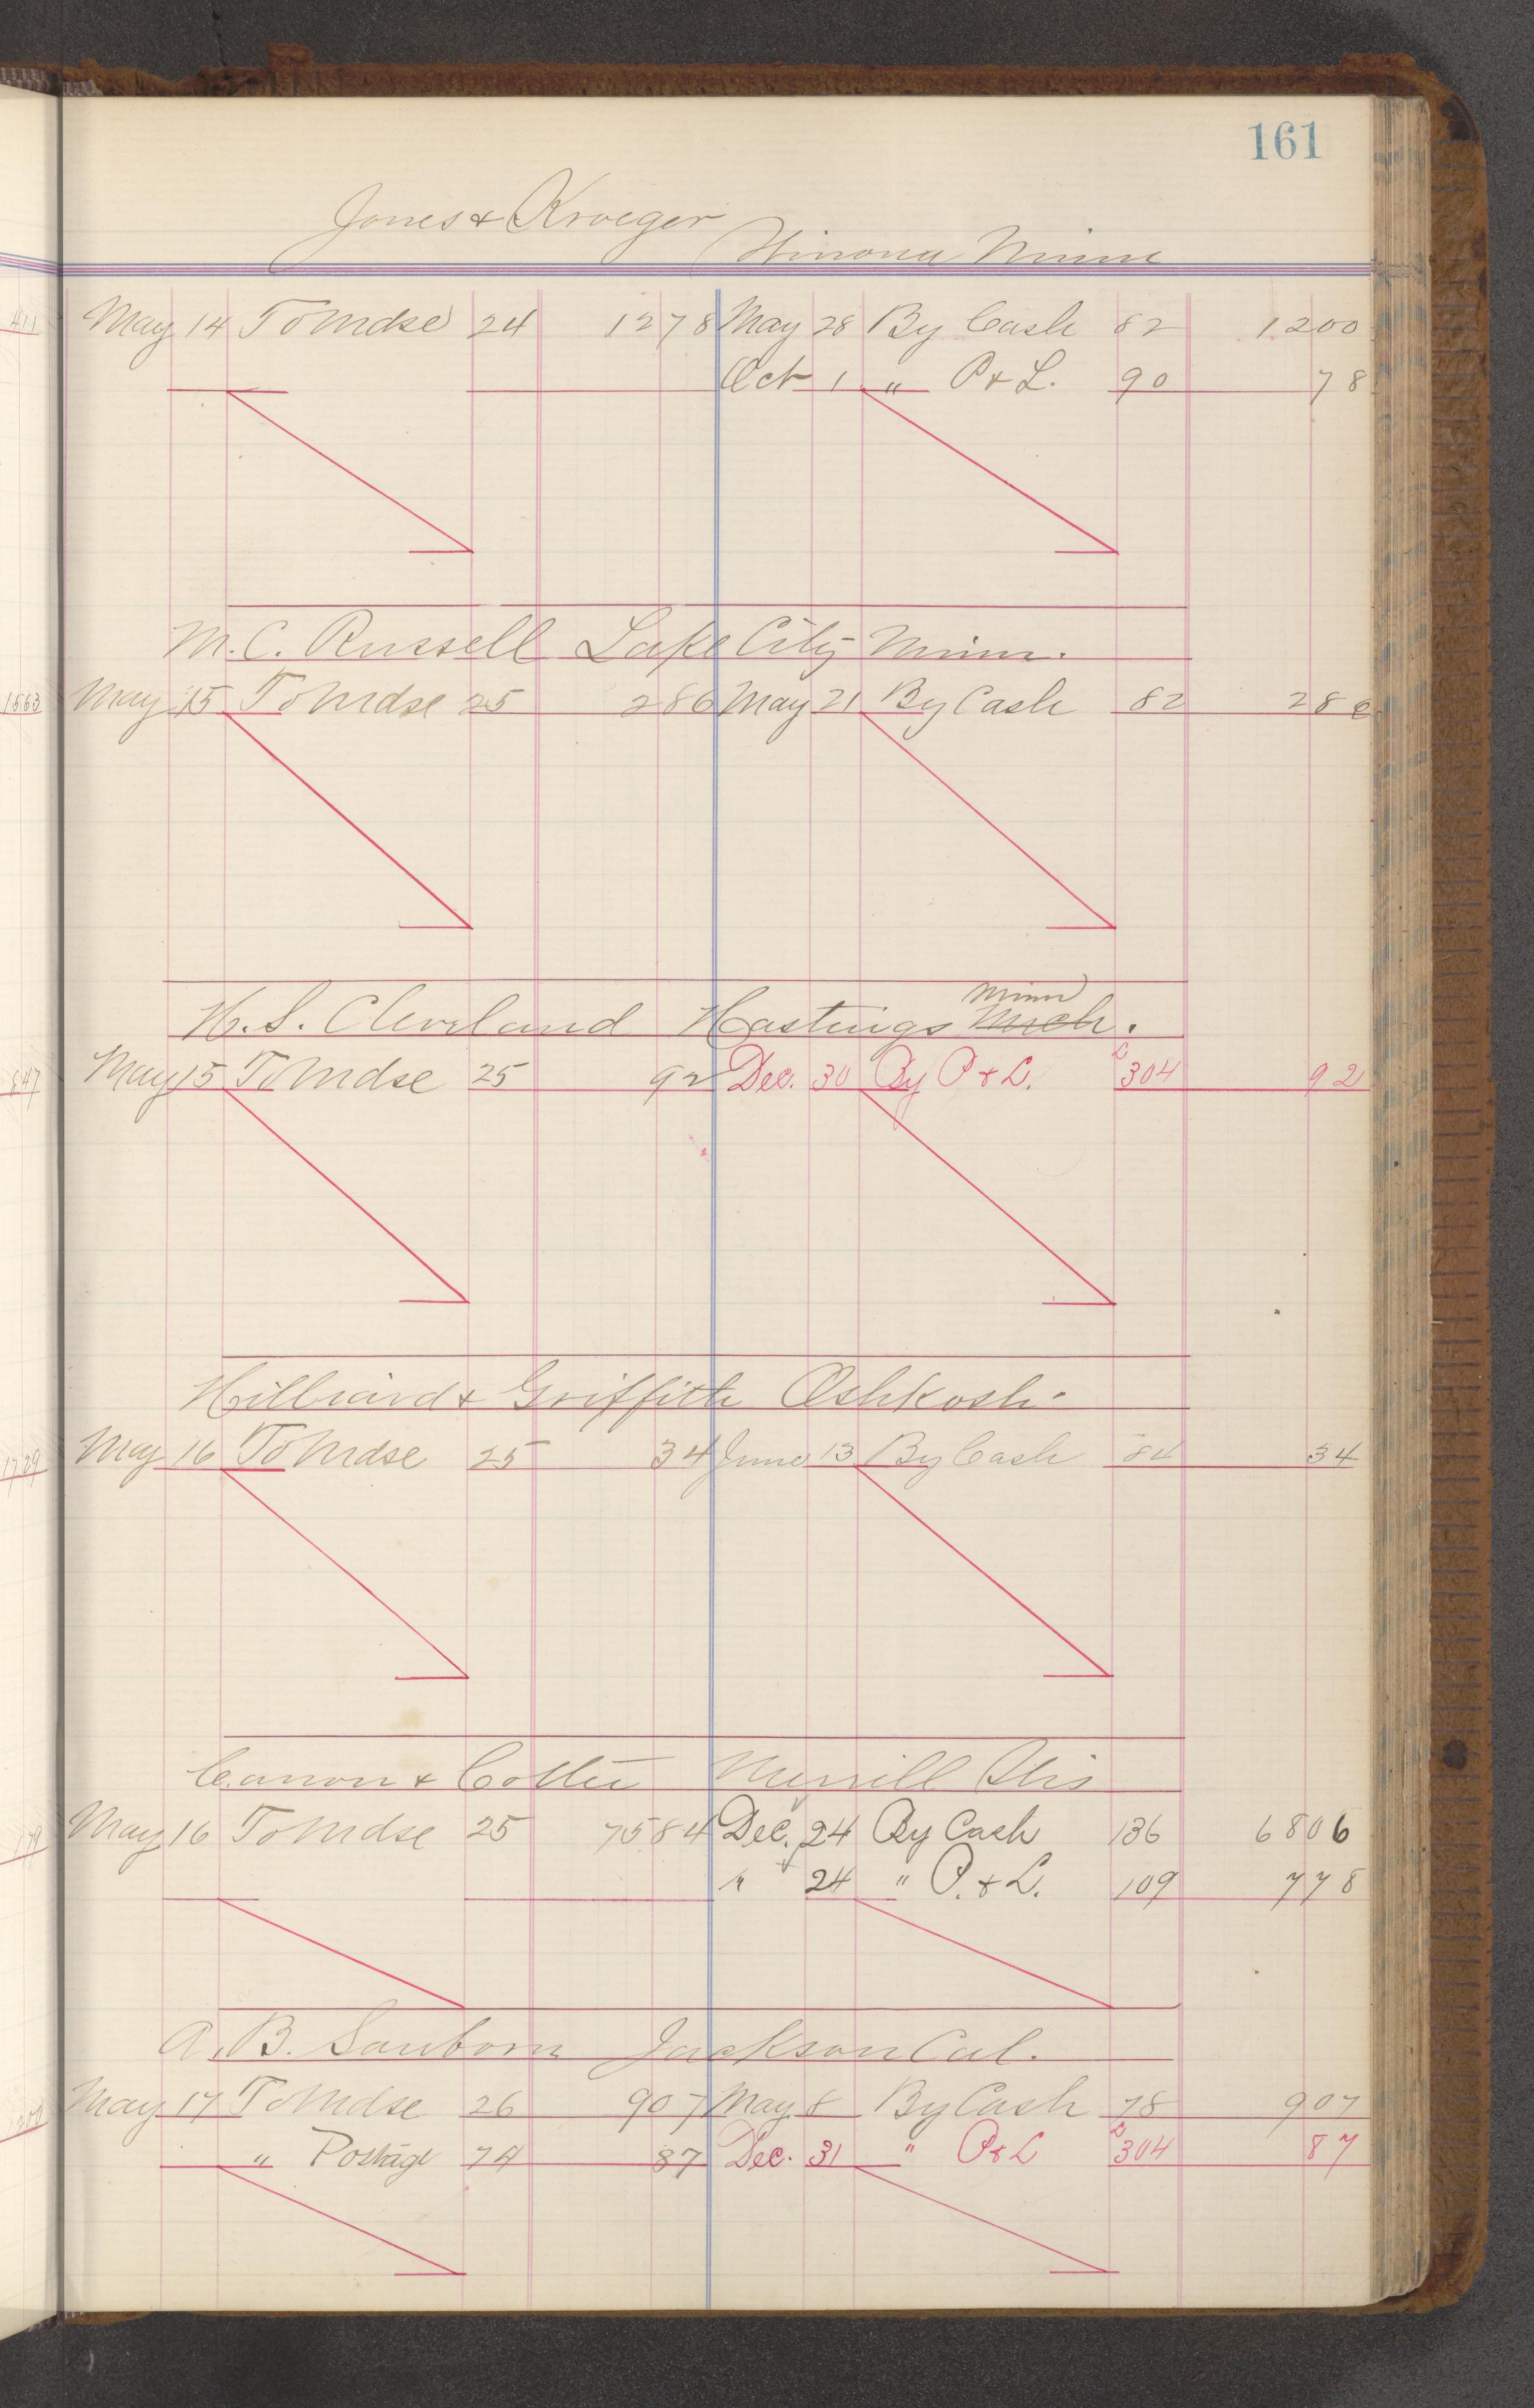 161
Jones & Kroeger Winona Minn
411 May 14 To Mdse 24 12 78 May 28 By Cash 82 12 00
Oct 1 " P & L. 90 78
M. C. Russell Lake City Minn.
1563 May 15 To Mdse 25 2 86 May 21 By Cash 82 2 86
Minn
H. S. Cleveland Hastings Mich.
547 May 15 To Mdse 25 92 Dec. 30 By P & L. L304 92
Hilliard & Griffith Oshkosh.
1729 May 16 To Mdse 25 34 June 13 By Cash 84 34
Canon & Merrill Wis
179 May 16 To Mdse 25 75 84 Dec. 24 By Cash 136 68 06
" 24 " P. & L. 109 7 78
A. B. Sanborn Jackson Cal.
May 17 To Mdse 26 9 07 May 8 By Cash 78 9 07
" Postage 74 87 Dec. 31 " P & L L304 87